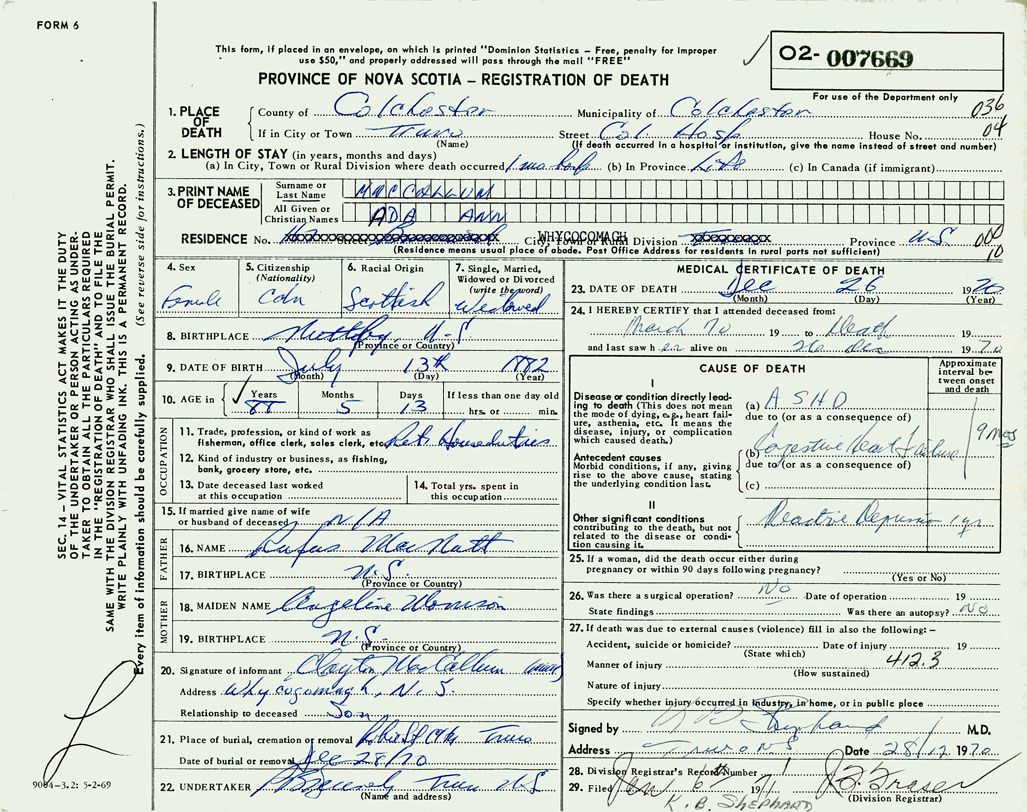 FORM 6
This form, if placed in an envelope, on which is printed "Dominion Statistics – Free, penalty for improper
use $50," and properly addressed will pass through the mail "FREE"
PROVINCE OF NOVA SCOTIA – REGISTRATION OF DEATH
02- 007669
For use of the Department only
1. PLACE OF DEATH
County of Colchester Municipality of Colchester 036
If in City or Town Truro Street Col. Hosp House No. 04
(Name) (If death occurred in a hospital or institution, give the name instead of street and number)
2. LENGTH OF STAY (in years, months and days)
(a) In City, Town or Rural Division where death occurred 1 mo (b) In Province Life (c) In Canada (if immigrant)
3. PRINT NAME OF DECEASED
Surname or Last Name MACCALLUM
All Given or Christian Names ADA ANN
RESIDENCE No. Street City, Town or Rural Division WHYCOCOMAGH Province N.S 000
(Residence means usual place of abode. Post Office Address for residents in rural parts not sufficient) 10
4. Sex Female
5. Citizenship (Nationality) Cdn
6. Racial Origin Scottish
7. Single, Married, Widowed or Divorced (write the word) Widowed
8. BIRTHPLACE Nuttby, N-S
(Province or Country)
9. DATE OF BIRTH July 13th 1882
(Month) (Day) (Year)
10. AGE in Years 88 Months 5 Days 13 If less than one day old hrs. or min.
OCCUPATION
11. Trade, profession, or kind of work as
fisherman, office clerk, sales clerk, etc. Ret. Houseduties
12. Kind of industry or business, as fishing,
bank, grocery store, etc.
13. Date deceased last worked at this occupation
14. Total yrs. spent in this occupation
15. If married give name of wife
or husband of deceased N/A
FATHER
16. NAME Rufus MacNutt
17. BIRTHPLACE N.S.
(Province or Country)
MOTHER
18. MAIDEN NAME Angeline
19. BIRTHPLACE N.S.
(Province or Country)
20. Signature of informant Clayton MacCallum
Address Whycogomagh, N.S.
Relationship to deceased Son
21. Place of burial, cremation or removal Truro
Date of burial or removal Dec 28/70
22. UNDERTAKER Truro N.S
(Name and address)
MEDICAL CERTIFICATE OF DEATH
23. DATE OF DEATH Dec 26 1970
(Month) (Day) (Year)
24. I HEREBY CERTIFY that I attended deceased from:
March 70 19 to Death 19
and last saw her alive on 26 dec 1970
CAUSE OF DEATH
Approximate interval between onset and death
I
Disease or condition directly leading to death (This does not mean the mode of dying, e.g., heart failure, asthenia, etc. It means the disease, injury, or complication which caused death.)
(a) ASHD
due to (or as a consequence of)
9 mos
Antecedent causes
Morbid conditions, if any, giving rise to the above cause, stating the underlying condition last.
(b) Congestive Heart failure
due to (or as a consequence of)
(c)
II
Other significant conditions contributing to the death, but not related to the disease or condition causing it.
Reactive Depression
25. If a woman, did the death occur either during
pregnancy or within 90 days following pregnancy?
(Yes or No)
26. Was there a surgical operation? No Date of operation 19
State findings Was there an autopsy? No
27. If death was due to external causes (violence) fill in also the following:–
Accident, suicide or homicide? Date of injury 19
(State which)
Manner of injury 412.3
(How sustained)
Nature of injury
Specify whether injury occurred in industry, in home, or in public place
Signed by M.D.
Address Truro NS Date 28/12 1970
28. Division Registrar's Record Number
29. Filed Jan 6th 1971 Fraser
(Division Registrar)
K.B. SHEPHARD
SEC. 14 – VITAL STATISTICS ACT MAKES IT THE DUTY
OF THE UNDERTAKER OR PERSON ACTING AS UNDERTAKER TO OBTAIN ALL THE PARTICULARS REQUIRED
IN THE "REGISTRATION OF DEATH" AND TO FILE THE
SAME WITH THE DIVISION REGISTRAR WHO SHALL ISSUE THE BURIAL PERMIT.
WRITE PLAINLY WITH UNFADING INK. THIS IS A PERMANENT RECORD.
Every item of information should be carefully supplied. (See reverse side for instructions.)
9004-3.2: 5-2-69